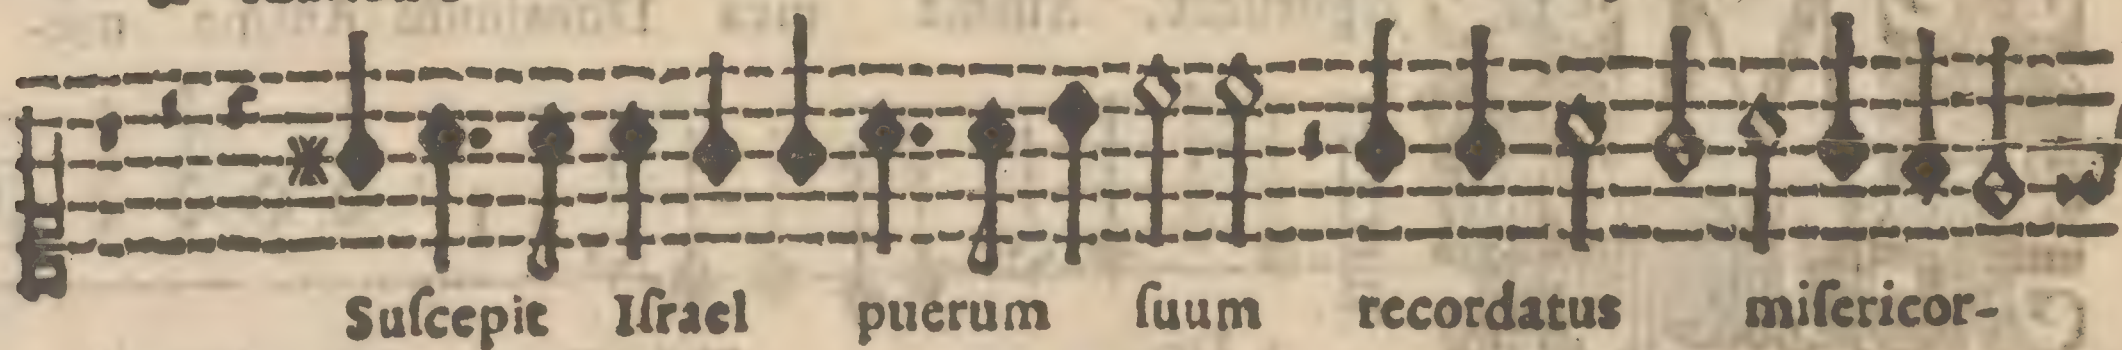 Suſcepit Iſrael puerum ſuum recordatus miſericor-